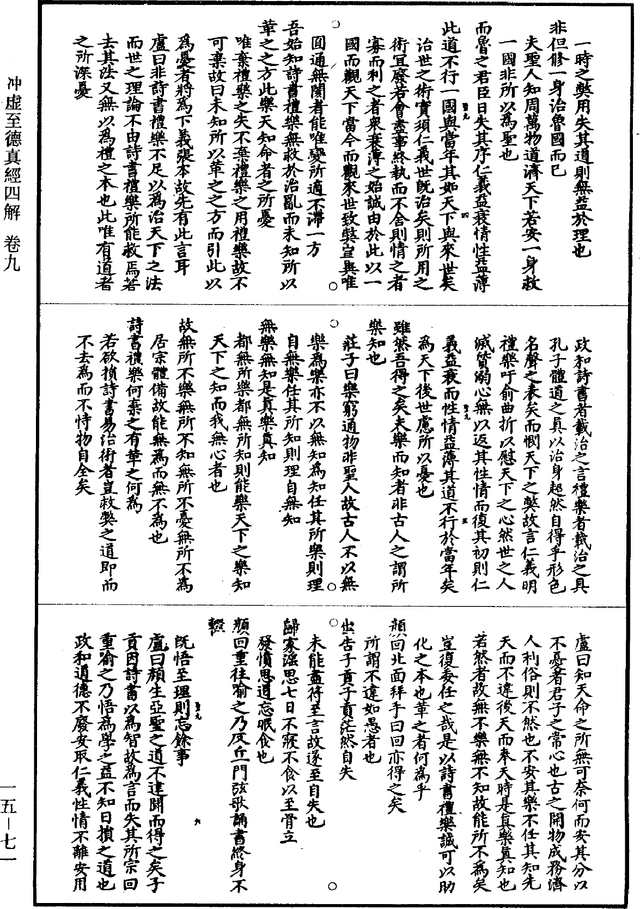 冲虛至德真經四解 卷九
一時之弊用失其道則無益於理也
非但修一身治魯國而已
夫聖人知周萬物道濟天下若安一身救
一國非所以為聖也
而魯之君臣日失其序仁義益衰情性益薄
此道不行一國與當年其如天下與來世矣
治世之術實須仁義世既治矣則所用之
術宜廢若會盡事終執而不舍則情之者
寡而利之者衆衰薄之始誠由於此以一
國而觀天下當今而觀來世致弊豈異唯
圓通無閡者能惟變所適不滯一方
吾始知詩書禮樂無救於治亂而未知所以
革之之方此樂天知命者之所憂
唯棄禮樂之失不棄禮樂之用禮樂故不
可棄故曰未知所以革之之方而引此以
為憂者將為下義張本故先有此言耳
盧曰非詩書禮樂不足以為治天下之法
而世之理論不由詩書禮樂所能救焉若
去其法又無以為禮之本也此唯有道者
之所深憂
政和詩書者載治之言禮樂者載治之具
孔子體道之真以治身超然自得乎形色
名聲之表矣而憫天下之弊故言仁義明
禮樂吁俞曲折以慰天下之心然世之人
滅質溺心無以返其性情而復其初則仁
義益衰而性情益薄其道不行於當年矣
為天下後世慮所以憂也
雖然吾得之矣夫樂而知者非古人之謂所
樂知也
莊子曰樂窮通物非聖人故古人不以無
樂為樂亦不以無知為知任其所樂則理
自無樂任其所知則理自無知
無樂無知是真樂真知
都無所樂都無所知則能樂天下之樂知
天下之知而我無心者也
故無所不樂無所不知無所不憂無所不為
居宗體備故能無為而無不為也
詩書禮樂何棄之有革之何為
若欲捐詩書易治術者豈救弊之道即而
不去為而不恃物自全矣
盧曰知天命之所無可奈何而安其分以
不憂者君子之常心也古之開物成務濟
人利俗則不然也不安其樂不任其知先
天而不違後天而奉天時是真樂真知也
若然者故無不樂無不知故能所不為矣
豈復委任之哉是以詩書禮樂誠可以助
化之本也革之者何為乎
顏回北面拜手曰回亦得之矣
所謂不違如愚者也
出告子貢子貢茫然自失
未能盡符至言故遂至自失也
歸家淫思七日不寢不食以至骨立
發憤思道忘眠食也
顏回重往喻之乃反丘門弦歌誦書終身不
輟
既悟至理則忘餘事
盧曰顏生亞聖之道不違聞而得之矣子
貢因詩書以為智故為言而失其所宗回
重喻之乃悟為學之益不知日損之道也
政和道德不廢安取仁義性情不離安用
一五—七一